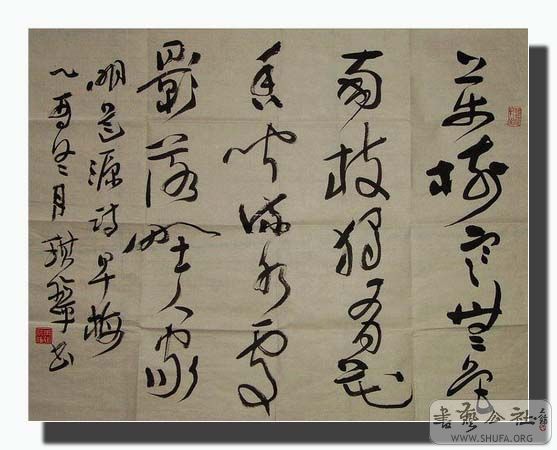 萬樹寒無色
南枝獨有花
香聞流水處
影落野人家
明道源詩早梅
乙酉冬月琪书
書藝公社
WWW.SHUFA.ORG